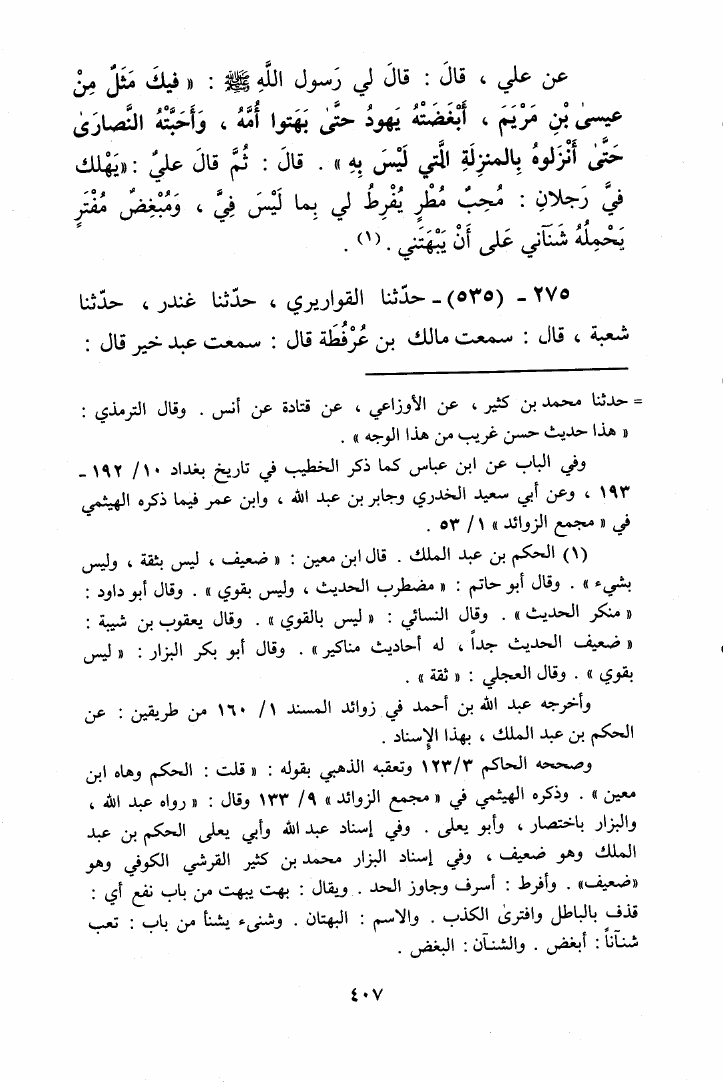 عن علي ، قالَ : قالَ لي رَسول اللَّهِ ﷺ : « فيكَ مَثَلٌ مِنْ
عيسىٰ بْنِ مَرْيَمَ ، أَبْغَضَتْهُ يَهودُ حتَّىٰ بَهَتوا أُمَّهُ ، وَأَحَبَّتْهُ النَّصارَىٰ
حَتَّىٰ أَنْزَلوهُ بِالمنزِلَةِ الَّتي لَيْسَ بِهِ » . قالَ : ثُمَّ قالَ عليٌ : «يَهْلك
فيَّ رَجلانِ : مُحِبٌ مُطْرٍ يُفْرِطُ لي بِما لَيْسَ فِيَّ ، وَمُبْغِضٌ مُفْتَرٍ
يَحْمِلُهُ شَنآني عَلى أَنْ يَبْهَتَني . (١) .
٢٧٥ - (٥٣٥) - حدّثنا القواريري ، حدّثنا غندر ، حدّثنا
شعبة ، قال : سمعت مالك بن عُرْفُطَة قال : سمعت عبد خير قال :
= حدثنا محمد بن كثير ، عن الأوزاعي ، عن قتادة عن أنس . وقال الترمذي :
« هذا حديث حسن غريب من هذا الوجه » .
وفي الباب عن ابن عباس كما ذكر الخطيب في تاريخ بغداد ١٠/ ١٩٢ -
١٩٣ ، وعن أبي سعيد الخدري وجابر بن عبد الله ، وابن عمر فيما ذكره الهيثمي
في « مجمع الزوائد » ١/ ٥٣ .
(١) الحكم بن عبد الملك . قال ابن معين : « ضعيف ، ليس بثقة ، وليس
بشيء » . وقال أبو حاتم : « مضطرب الحديث ، وليس بقوي » . وقال أبو داود :
« منكر الحديث » . وقال النسائي : « ليس بالقوي » . وقال يعقوب بن شيبة :
« ضعيف الحديث جداً ، له أحاديث مناكير » . وقال أبو بكر البزار : « ليس
بقوي » . وقال العجلي : « ثقة » .
وأخرجه عبد الله بن أحمد في زوائد المسند ١/ ١٦٠ من طريقين : عن
الحكم بن عبد الملك ، بهذا الإسناد .
وصححه الحاكم ١٢٣/٣ وتعقبه الذهبي بقوله : « قلت : الحكم وهاه ابن
معين » . وذكره الهيثمي في « مجمع الزوائد » ٩/ ١٣٣ وقال : « رواه عبد الله ،
والبزار باختصار ، وأبو يعلى . وفي إسناد عبد الله وأبي يعلى الحكم بن عبد
الملك وهو ضعيف ، وفي إسناد البزار محمد بن كثير القرشي الكوفي وهو
«ضعيف» . وأفرط : أسرف وجاوز الحد . ويقال : بهت يبهت من باب نفع أي :
قذف بالباطل وافترىٰ الكذب . والاسم : البهتان . وشنىء يشنأ من باب : تعب
شنآناً : أبغض . والشنآن : البغض .
٤٠٧